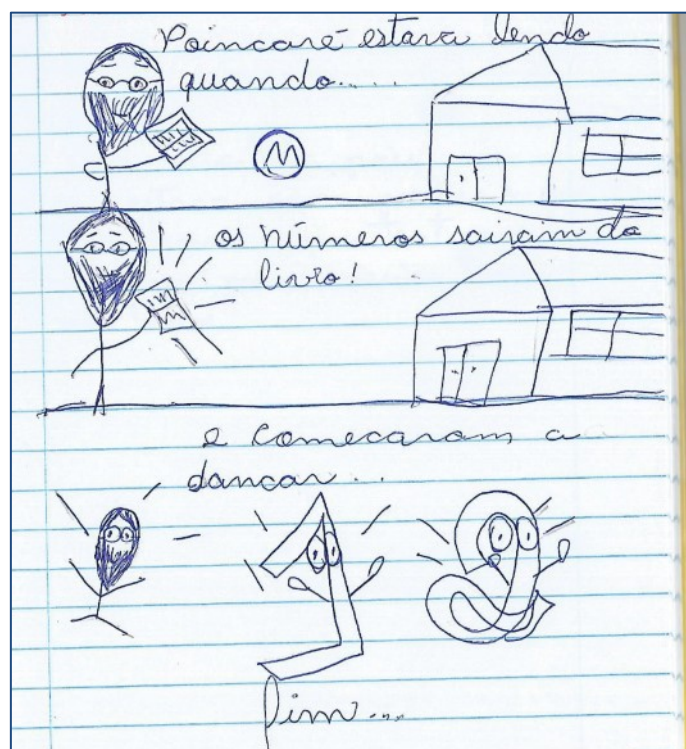 Poincaré estava lendo
quando.....
M
os números sairam do
livro!
e comecaram a
dancar...
Fim...